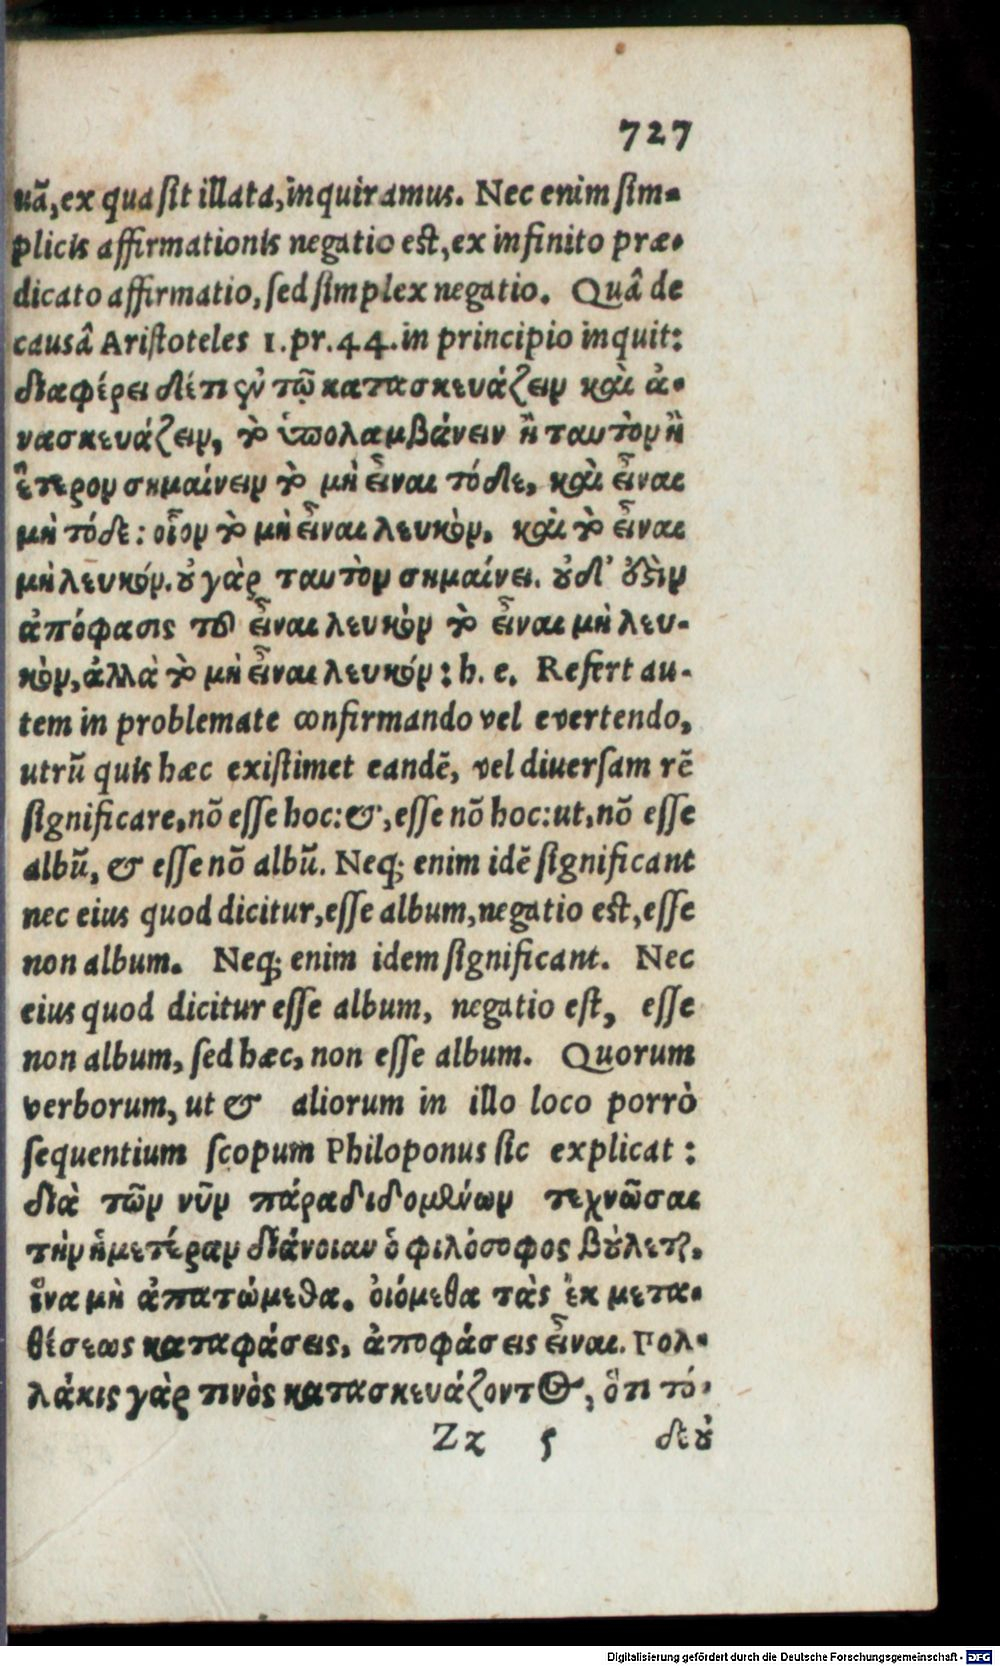 727
uã, ex qua sit illata, inquiramus. Nec enim sim-
plicis affirmationis negatio est, ex infinito præ-
dicato affirmatio, sed simplex negatio. Quâ de
causâ Aristoteles 1. pr. 44. in principio inquit:
διαφέρει δέ τι ἐν τῷ κατασκευάζειν καὶ ἀ-
νασκευάζειν, τὸ ὑπολαμβάνειν ἢ ταυτὸν ἢ
ἕτερον σημαίνειν τὸ μὴ εἶναι τόδε, καὶ εἶναι
μὴ τόδε: οἷον τὸ μὴ εἶναι λευκὸν, καὶ τὸ εἶναι
μὴ λευκόν. οὐ γὰρ ταυτὸν σημαίνει. οὐδ' ἔστιν
ἀπόφασις τοῦ εἶναι λευκὸν τὸ εἶναι μὴ λευ-
κὸν, ἀλλὰ τὸ μὴ εἶναι λευκόν: h. e. Refert au-
tem in problemate confirmando vel evertendo,
utrũ quis hæc existimet eandẽ, vel diuersam rẽ
significare, nõ esse hoc: &, esse nõ hoc: ut, nõ esse
albũ, & esse nõ albũ. Neq; enim idẽ significant
nec eius quod dicitur, esse album, negatio est, esse
non album. Neq; enim idem significant. Nec
eius quod dicitur esse album, negatio est, esse
non album, sed hæc, non esse album. Quorum
verborum, ut & aliorum in illo loco porrò
sequentium scopum Philoponus sic explicat:
διὰ τῶν νῦν πάραδιδομένων τεχνῶσαι
τὴν ἡμετέραν διάνοιαν ὁ φιλόσοφος βούλεται,
ἵνα μὴ ἀπατώμεθα. οἰόμεθα τὰς ἐκ μετα-
θέσεως καταφάσεις, ἀποφάσεις εἶναι. Πολ-
λάκις γὰρ τινὸς κατασκευάζοντος, ὅτι τό-
Zz 5 δε οὐ
Digitalisierung gefördert durch die Deutsche Forschungsgemeinschaft - DFG